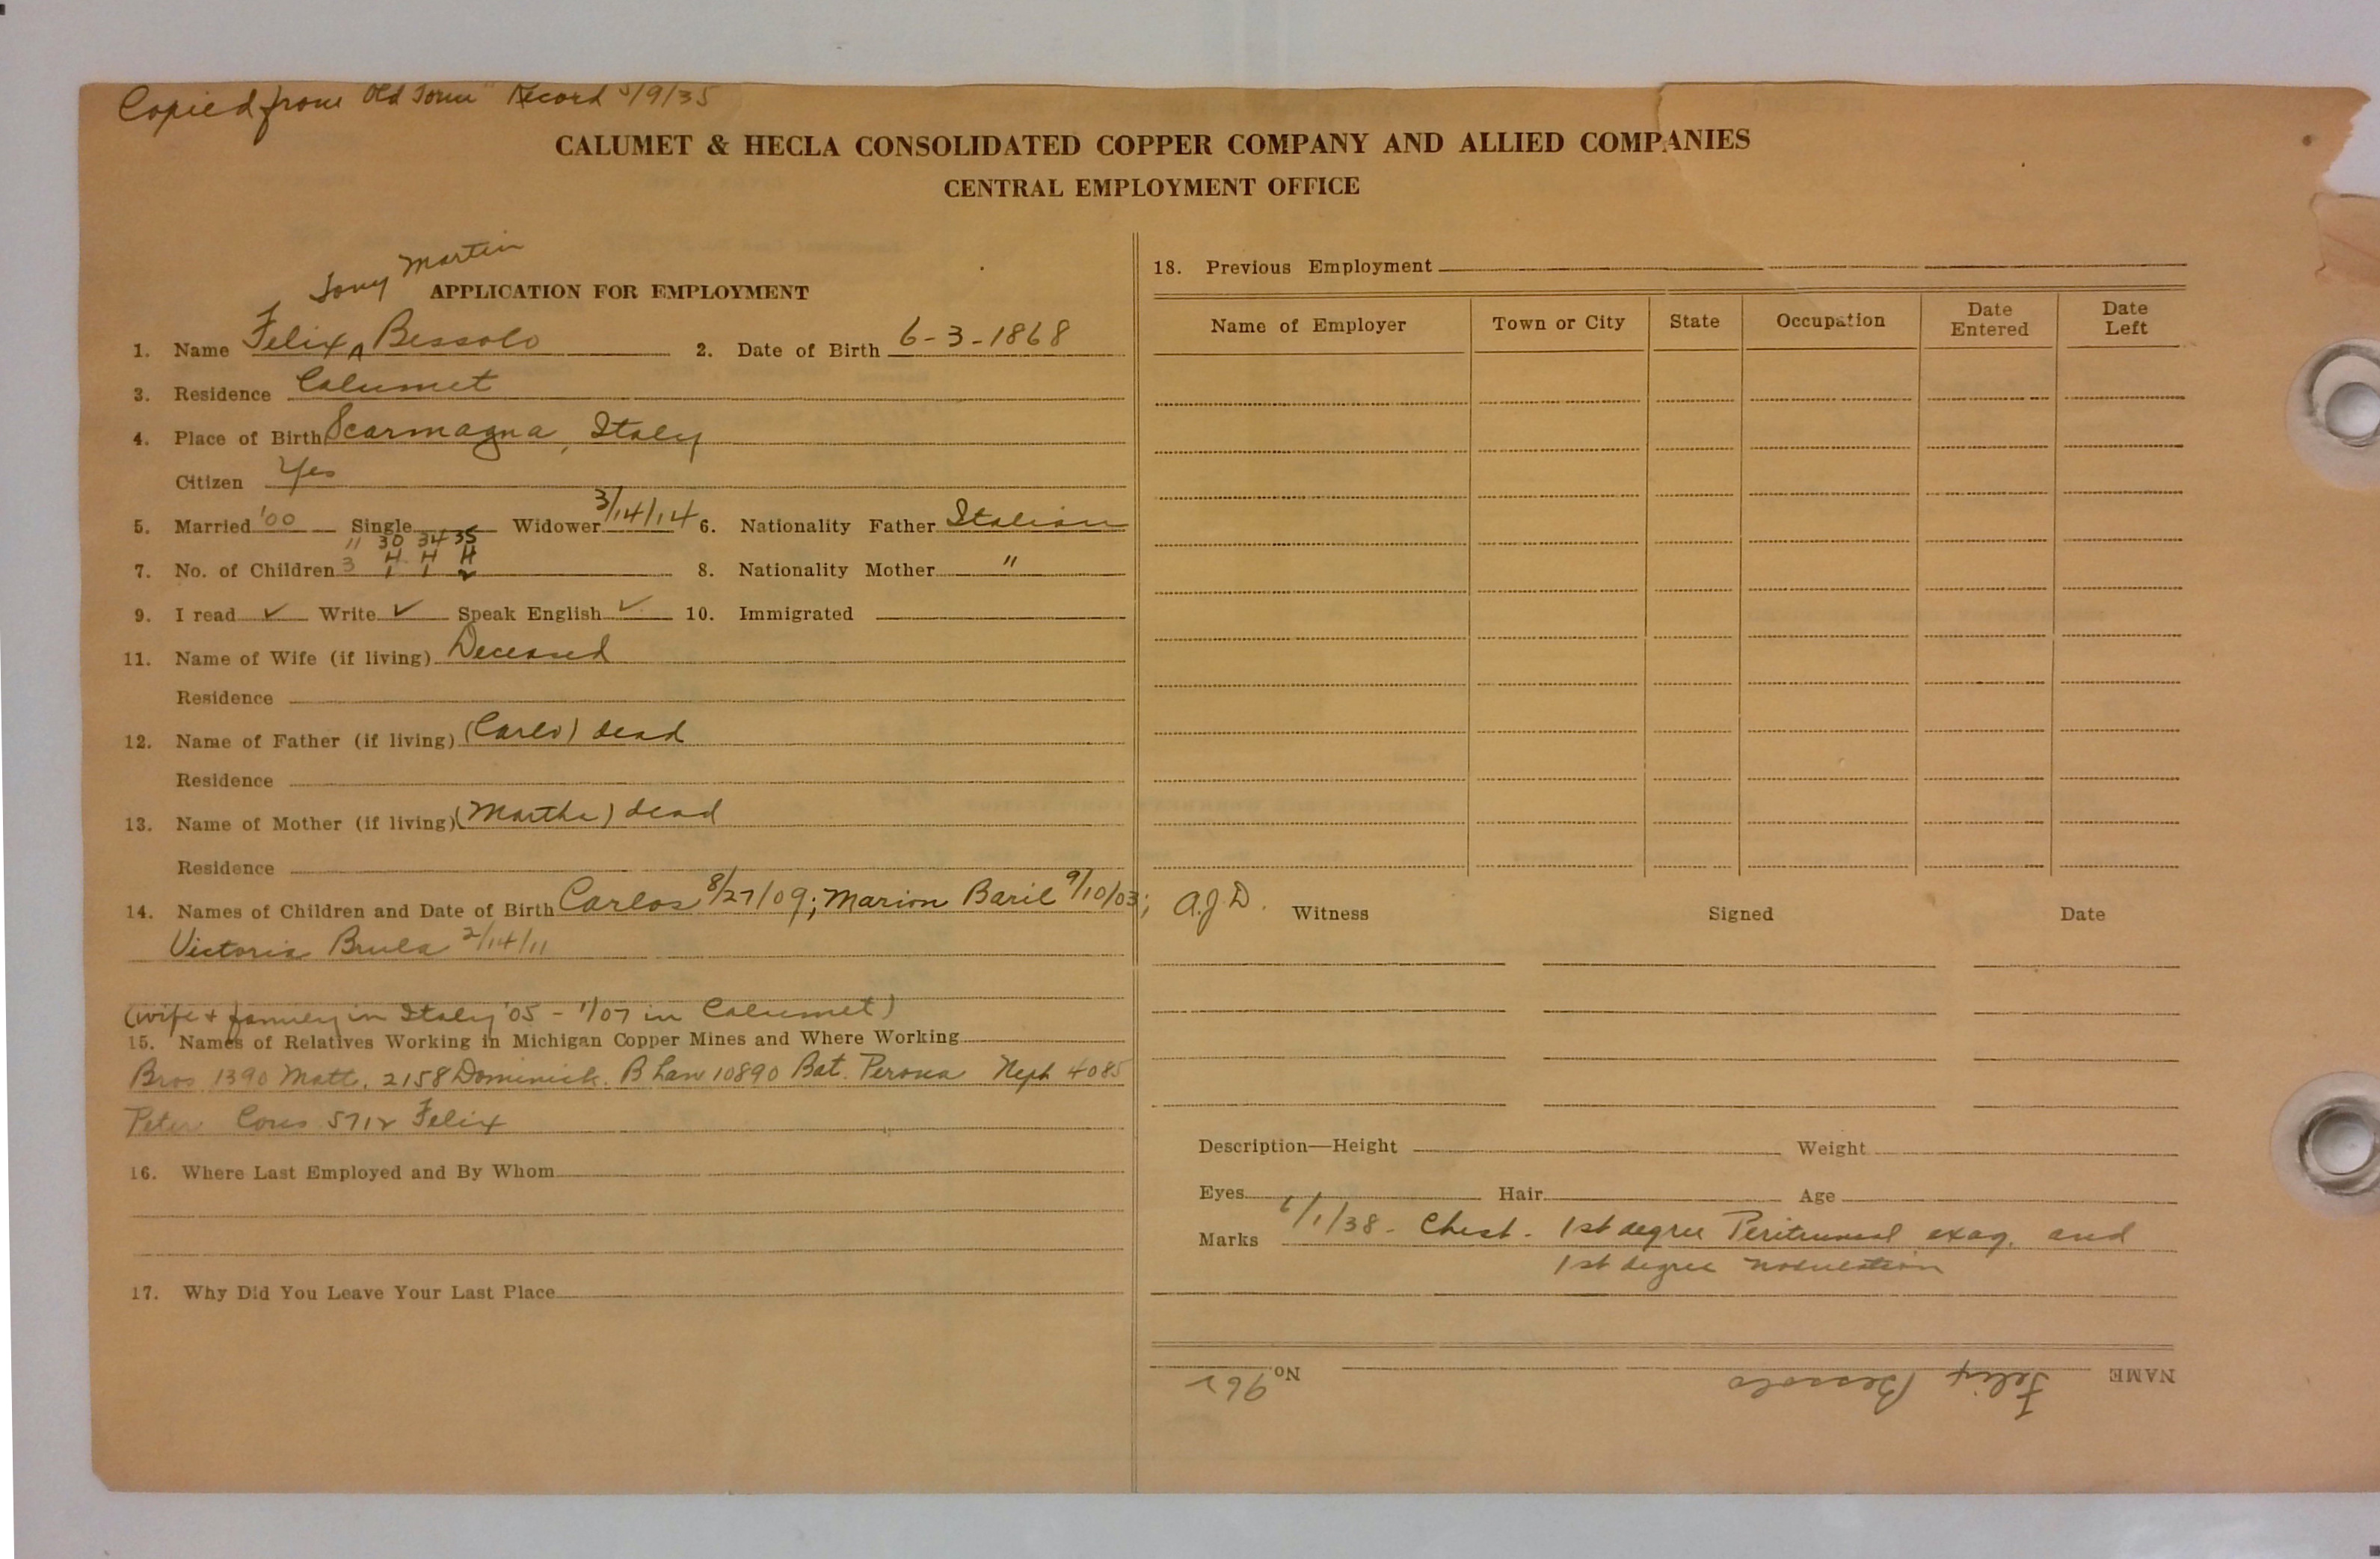 Copied from "Old Form" Record 5/9/35
CALUMET & HECLA CONSOLIDATED COPPER COMPANY AND ALLIED COMPANIES
CENTRAL EMPLOYMENT OFFICE
Tony Martin
APPLICATION FOR EMPLOYMENT
1. Name Felix ^ Bessolo 2. Date of Birth 6-3-1868
3. Residence Calumet
4. Place of Birth Scarmagna, Italy
Citizen Yes
5. Married '00 Single Widower 3/14/14 6. Nationality Father Italian
" 30 34 35
H H H
7. No. of Children 3 1 1 2 8. Nationality Mother "
9. I read ✓ Write ✓ Speak English ✓ 10. Immigrated
11. Name of Wife (if living) Deceased
Residence
12. Name of Father (if living) (Carlo) dead
Residence
13. Name of Mother (if living) (Martha) dead
Residence
14. Names of Children and Date of Birth Carlos 8/27/09; Marion Baril 9/10/03;
Victoria Brula 2/14/11
(wife + family in Italy '05 - 1/07 in Calumet)
15. Names of Relatives Working in Michigan Copper Mines and Where Working
Bros 1390 Matt, 2158 Dominick. B Law 10890 Bat. Perona Neph 4085
Peter Cous 5712 Felix
16. Where Last Employed and By Whom
17. Why Did You Leave Your Last Place
18. Previous Employment
Name of Employer Town or City State Occupation Date Entered Date Left
A.J.D. Witness Signed Date
Description—Height Weight
Eyes Hair Age
Marks 6/1/38 - Chest - 1st degree exag. and
1st degree nodulation
NAME Felix Bessolo No. 962